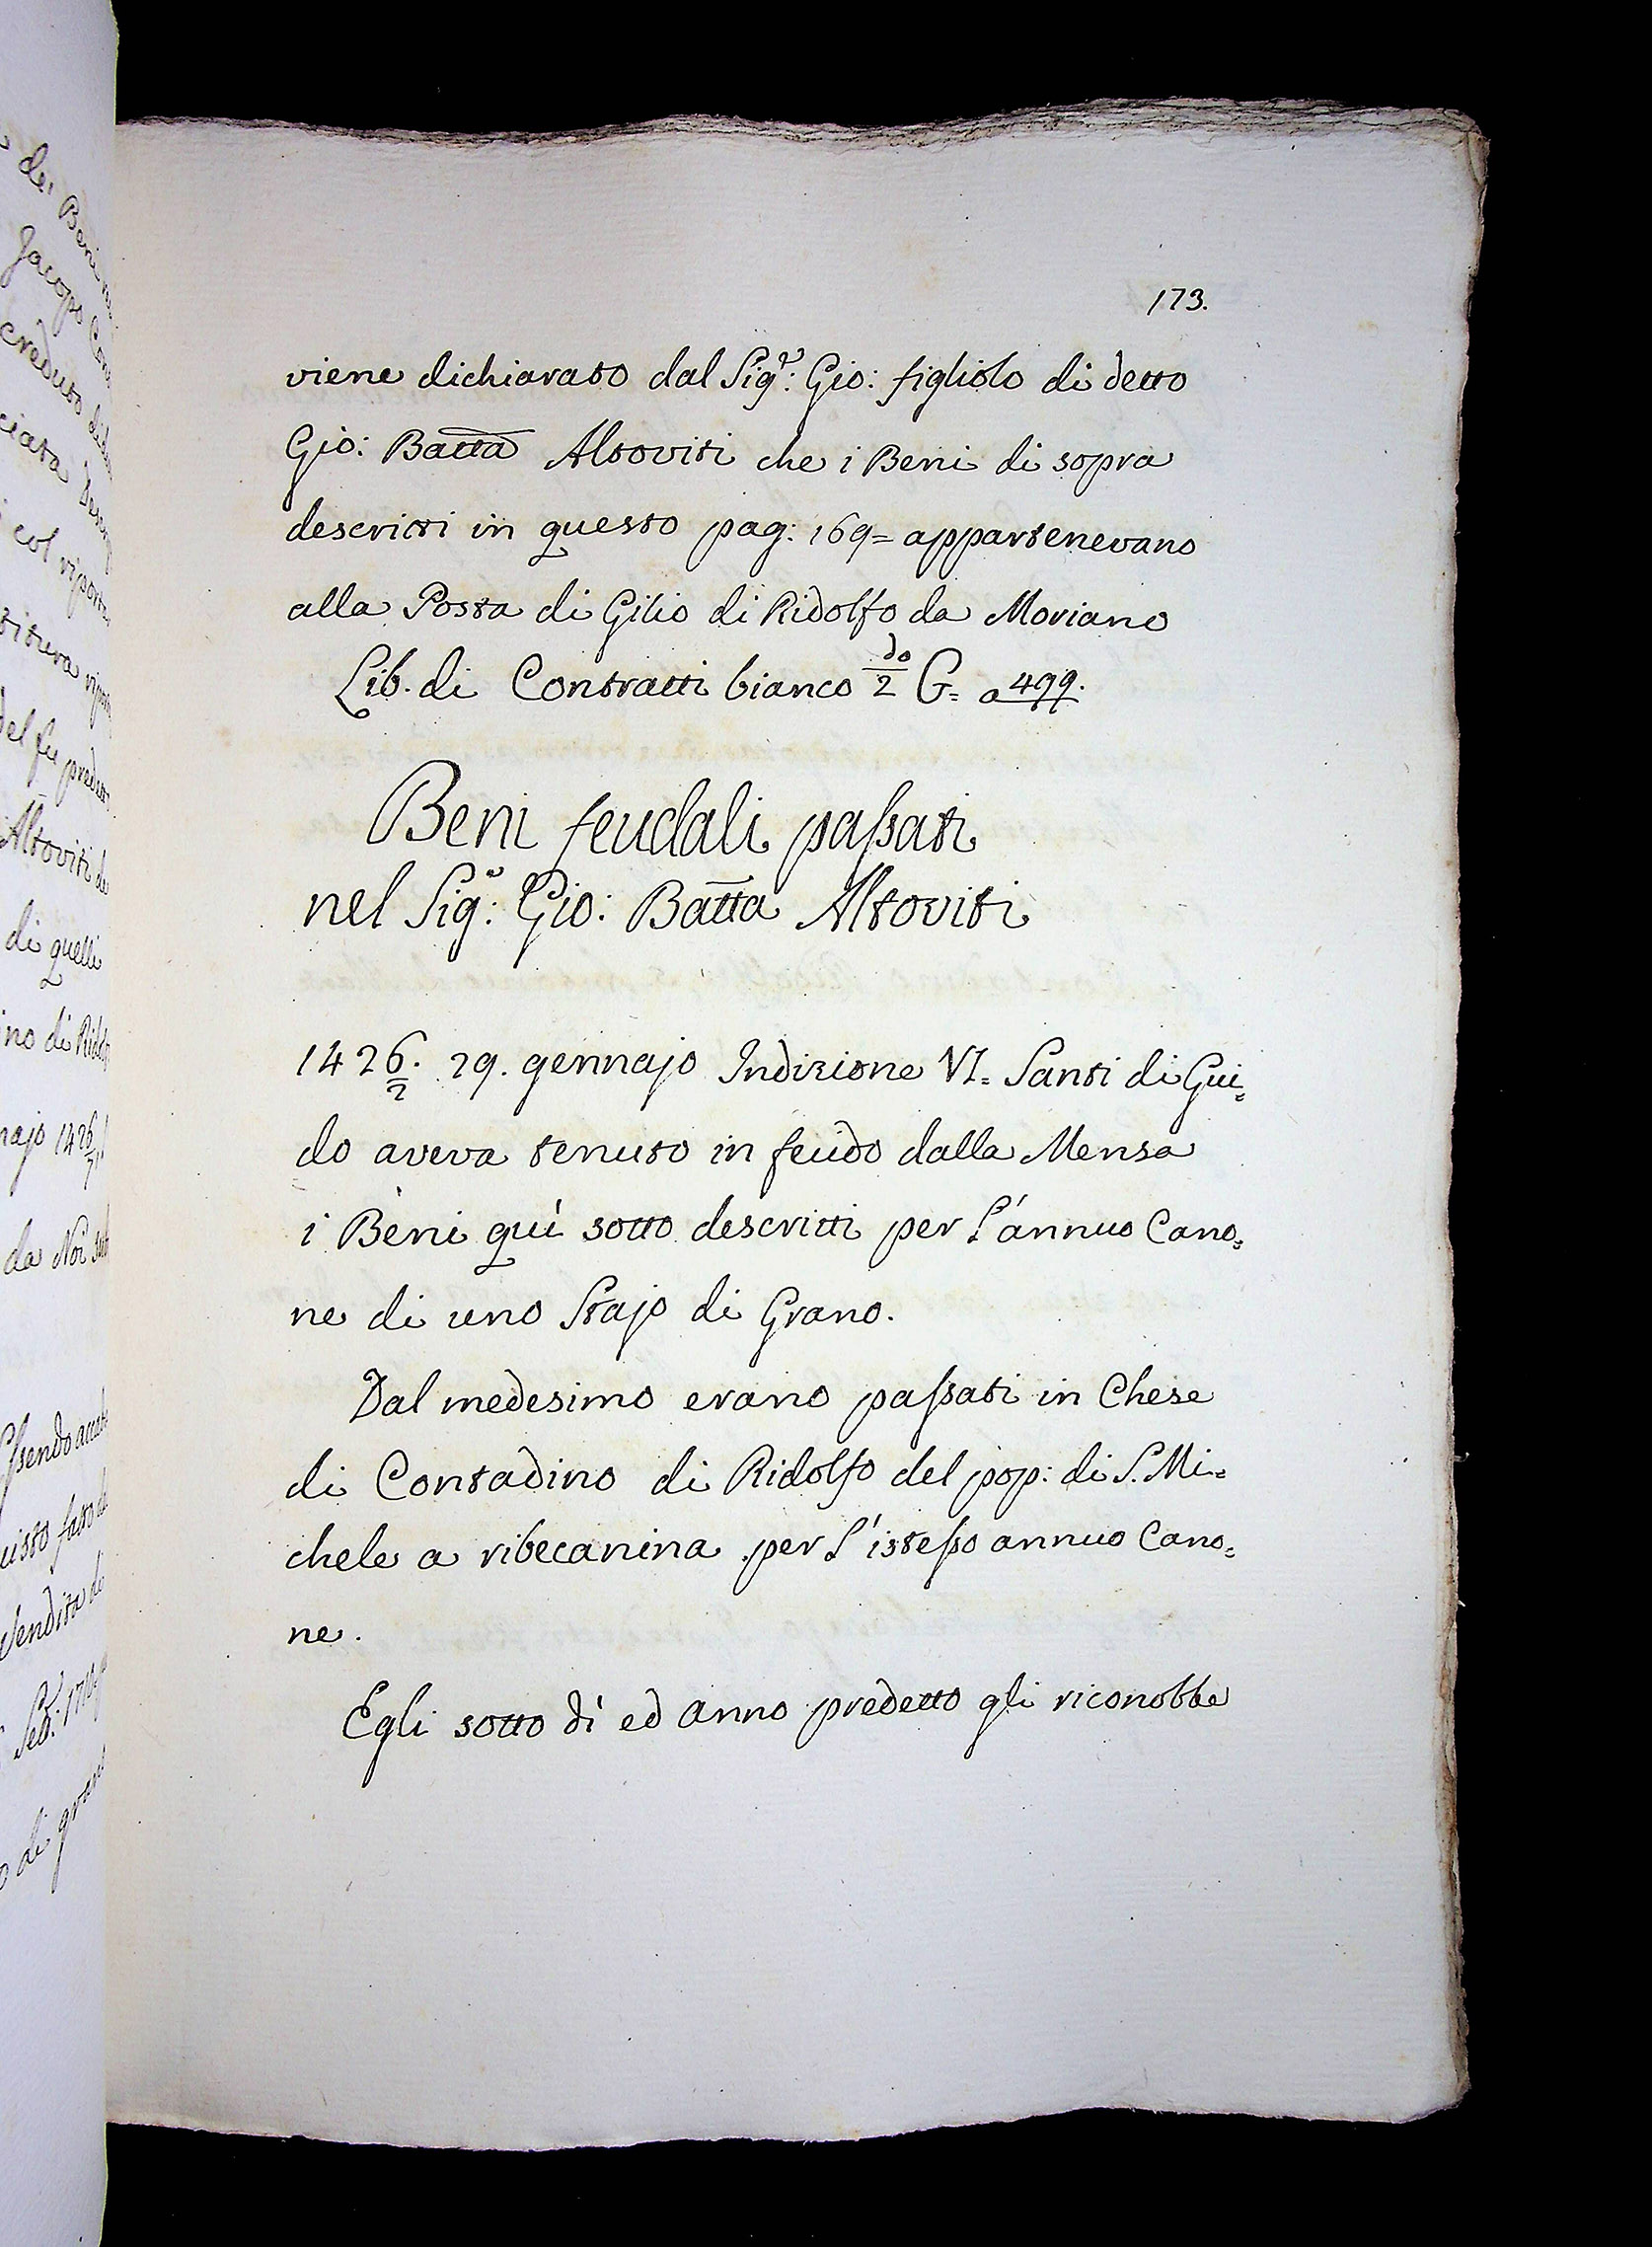 de' Beni
Jacopo
creduto
ciata
col
Altoviti
di quelli
no di
1426/7
da Noi
Vendita
di
173.
viene dichiarato dal Sig.r: Gio: figliolo di detto
Gio: Batta Altoviti che i Beni di sopra
descritti in questo pag: 169= appartenevano
alla Posta di Gilio di Ridolfo da Moriano
Lib. di Contratti bianco do/2 G= a 499.
Beni feudali paſsati
nel Sig.e: Gio: Batta Altoviti
1426/7. 29. gennajo Indizione VI= Santi di Gui=
do aveva tenuto in feudo dalla Mensa
i Beni quì sotto descritti per l'annuo Cano=
ne di uno Stajo di Grano.
Dal medesimo erano paſsati in Chese
di Contadino di Ridolfo del pop: di S. Mi=
chele a ribecanina per l'isteſso annuo Cano=
ne.
Egli sotto dì ed anno predetto gli riconobbe